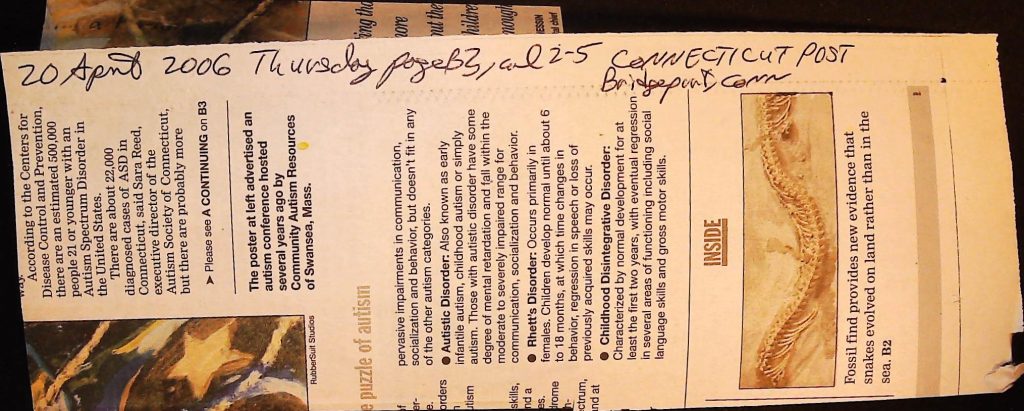 20 April 2006 Thursday page B3, and 2-5 CONNECTICUT POST
Bridgeport, Conn
way.
According to the Centers for
Disease Control and Prevention,
there are an estimated 500,000
people 21 or younger with an
Autism Spectrum Disorder in
the United States.
There are about 22,000
diagnosed cases of ASD in
Connecticut, said Sara Reed,
executive director of the
Autism Society of Connecticut,
but there are probably more
➤ Please see A CONTINUING on B3
The poster at left advertised an
autism conference hosted
several years ago by
Community Autism Resources
of Swansea, Mass.
RubberSuit Studios
e puzzle of autism
pervasive impairments in communication,
socialization and behavior, but doesn't fit in any
of the other autism categories.
● Autistic Disorder: Also known as early
infantile autism, childhood autism or simply
autism. Those with autistic disorder have some
degree of mental retardation and fall within the
moderate to severely impaired range for
communication, socialization and behavior.
● Rhett's Disorder: Occurs primarily in
females. Children develop normal until about 6
to 18 months, at which time changes in
behavior, regression in speech or loss of
previously acquired skills may occur.
● Childhood Disintegrative Disorder:
Characterized by normal development for at
least the first two years, with eventual regression
in several areas of functioning including social
language skills and gross motor skills.
INSIDE
Fossil find provides new evidence that
snakes evolved on land rather than in the
sea. B2